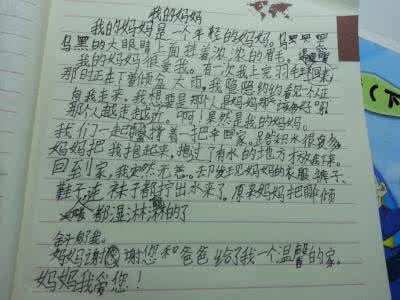 我的妈妈
我的妈妈是一个年轻的妈妈。
乌黑的大眼睛上面挂着浓浓的眉毛。
我的妈妈很爱我。有一次我上完羽毛球
那时正在下着倾盆大雨。我隐隐约约看见一个人正
向我走来。我想要是那个人是妈妈那该多好
那个人越走越近。啊！果然是我的妈妈。
我们一起撑着一把伞回家。路积水很多
妈妈把我抱起来，抱过了有水的地方才放下来。
回到家，我安然无恙。去发现妈妈的衣服裤子、
鞋子连袜子都拧出水来了。原来妈妈把伞倾
都湿淋淋的了
妈妈谢谢您和爸爸给了我一个温馨的家。
妈妈我爱您！
下